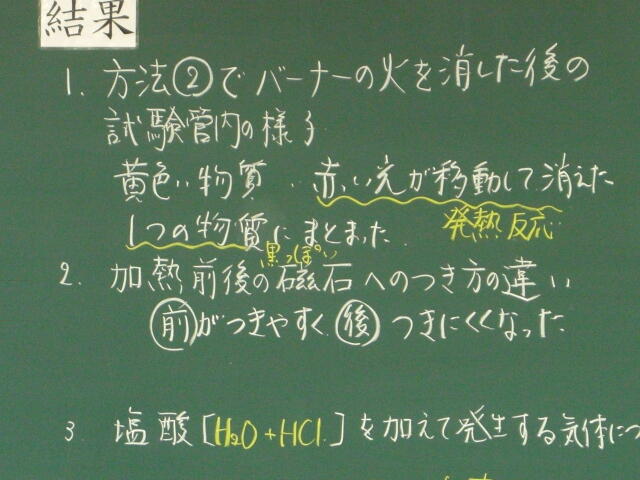 結果
1. 方法②でバーナーの火を消した後の
試験管内の様子
黄色い物質 赤い光が移動して消えた
1つの物質にまとまった. 発熱反応
黒っぽい
2. 加熱前後の磁石へのつき方の違い
前がつきやすく 後つきにくくなった
3 塩酸[H₂O+HCl.]を加えて発生する気体につ